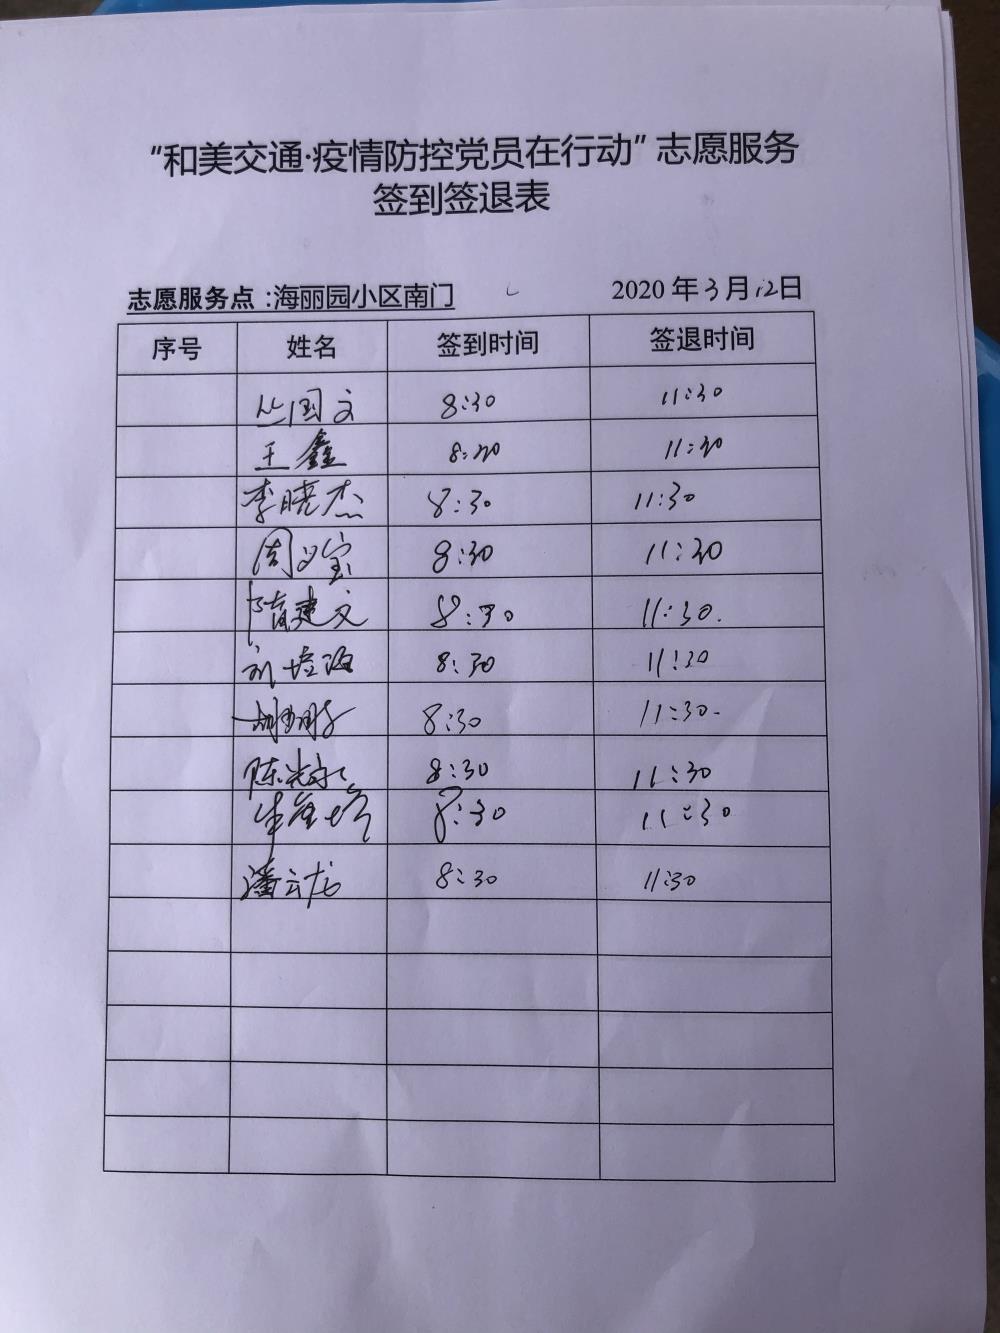 “和美交通·疫情防控党员在行动”志愿服务
签到签退表
志愿服务点：海丽园小区南门 2020年3月12日
序号 姓名 签到时间 签退时间
丛国文 8:30 11:30
王鑫 8:30 11:30
李晓杰 8:30 11:30
周义宝 8:30 11:30
隋建文 8:30 11:30.
刘培海 8:30 11:30
8:30 11:30.
陈光永 8:30 11:30
8:30 11:30
潘云龙 8:30 11:30